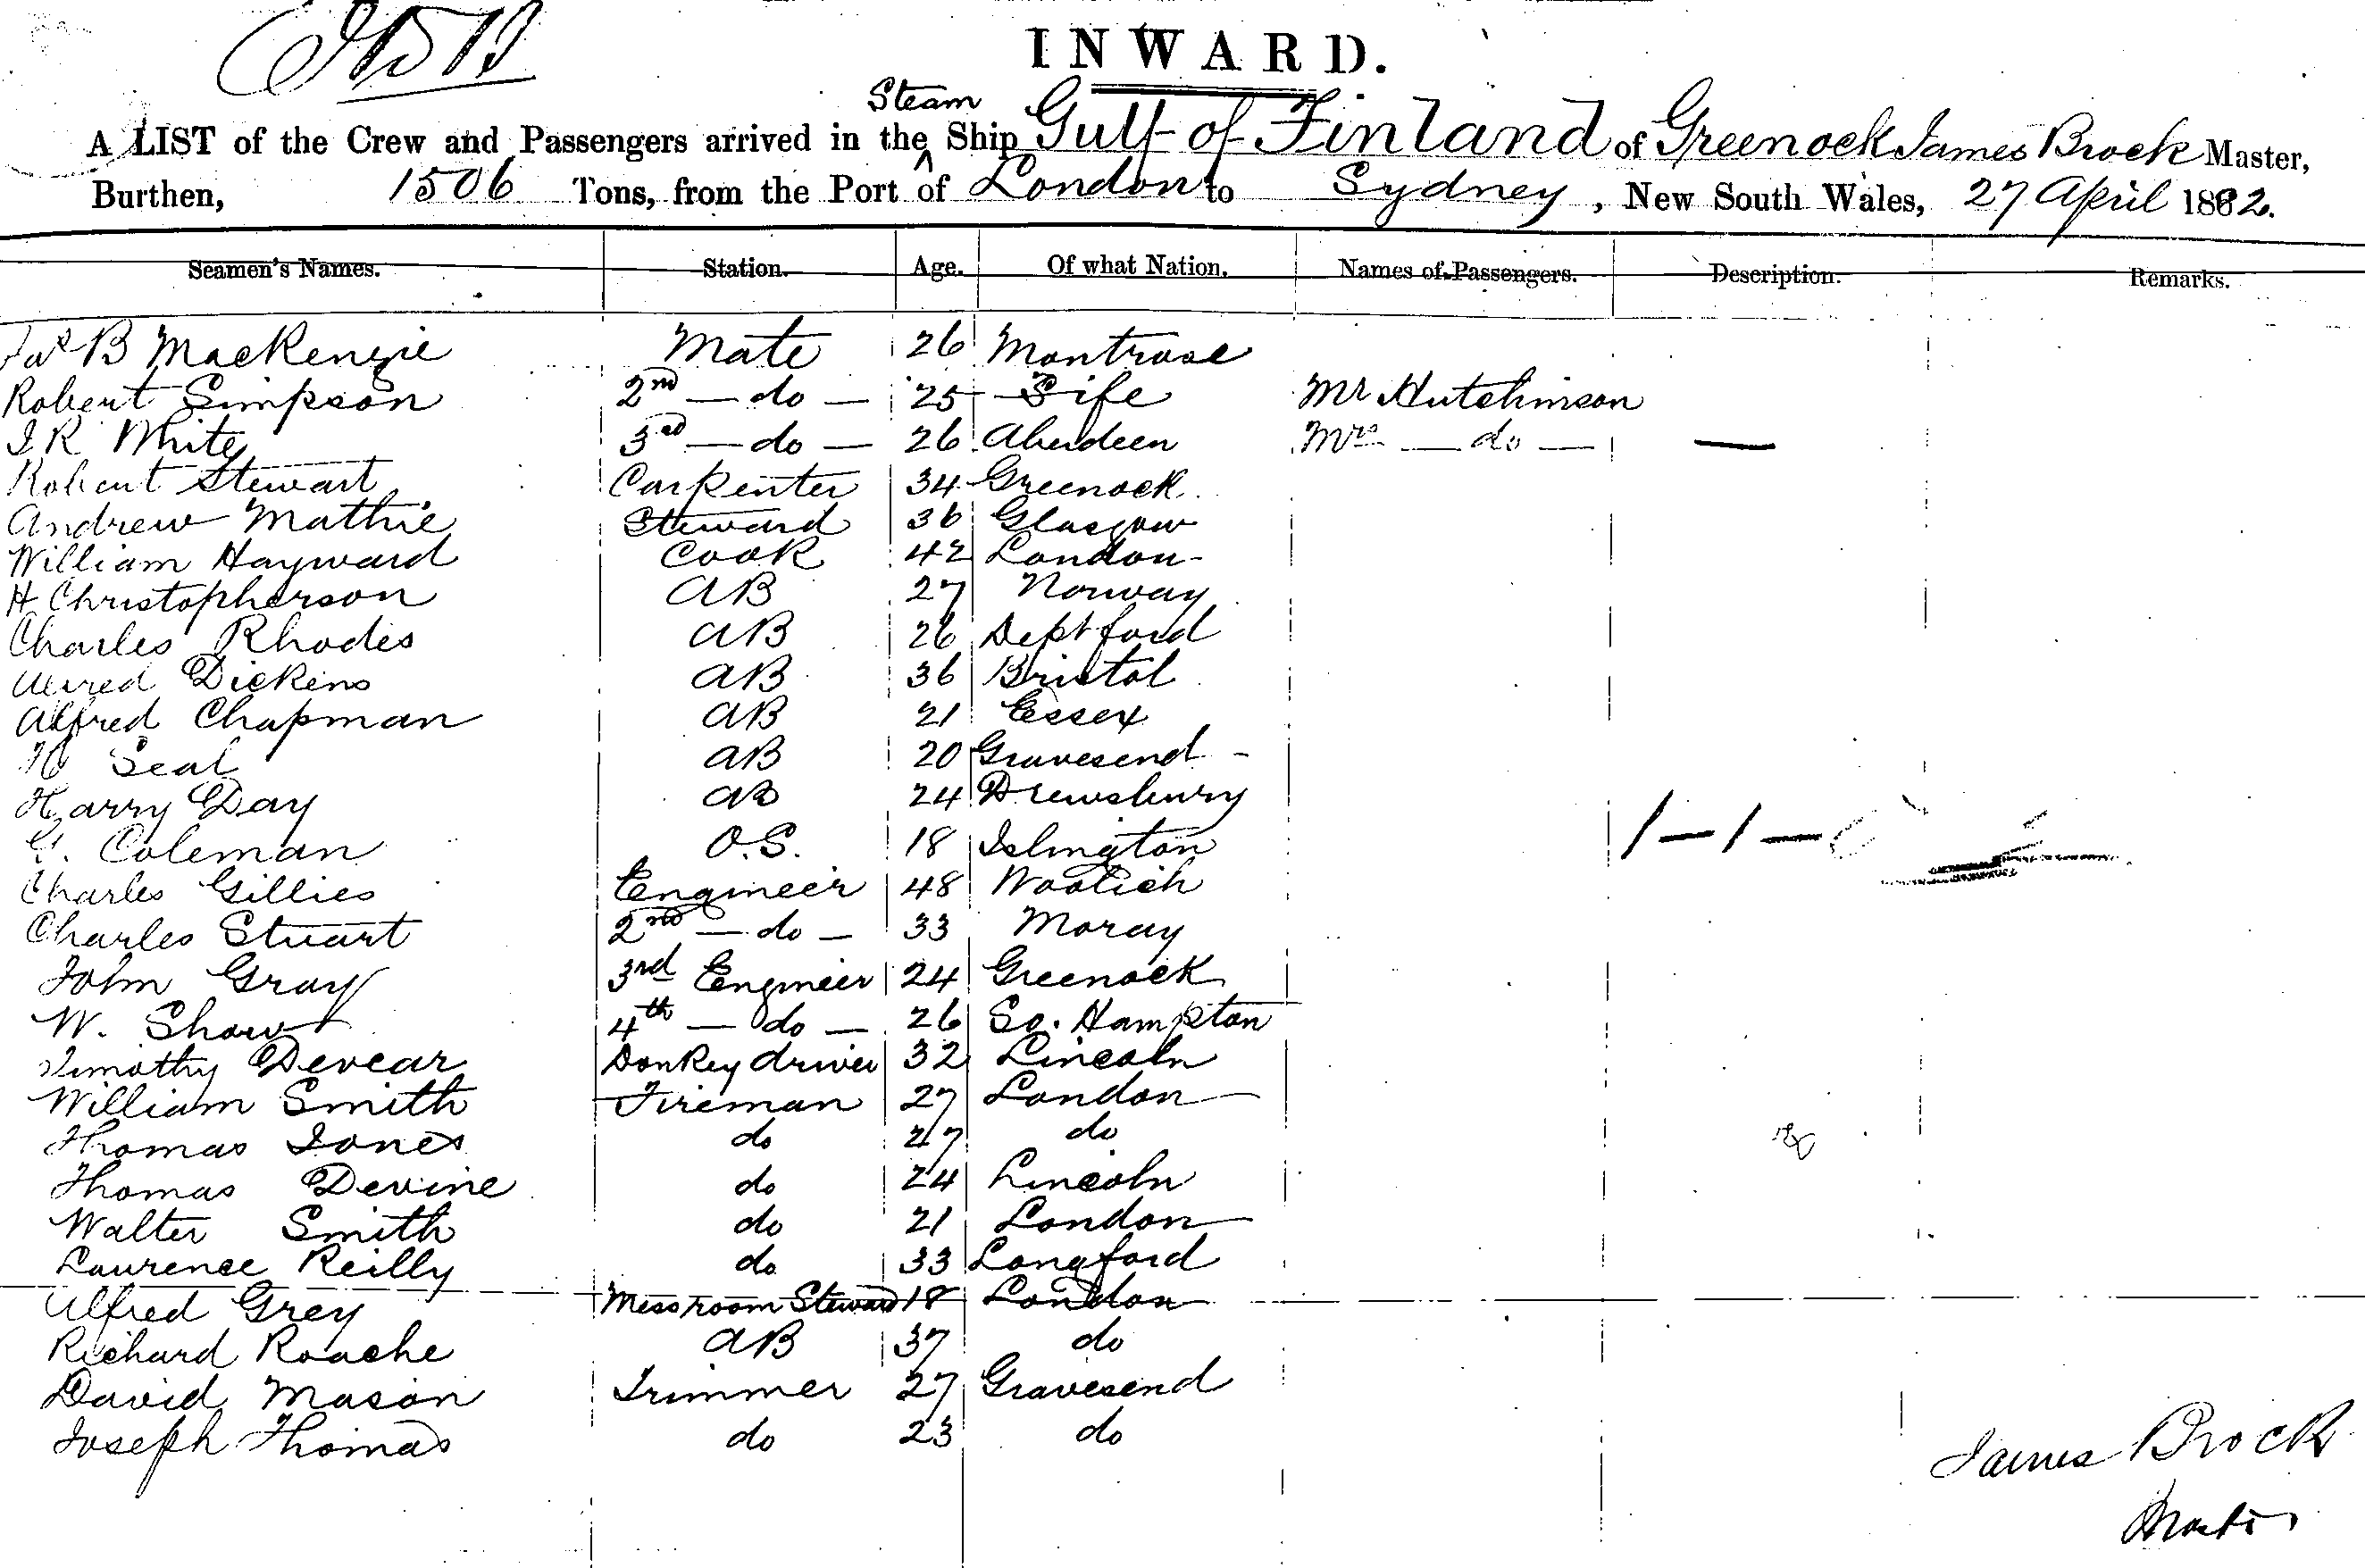 INWARD.
A LIST of the Crew and Passengers arrived in the Steam Ship Gulf of Finland of Greenock James Brock Master,
Burthen, 1506 Tons, from the Port of London to Sydney, New South Wales, 27 April 1882.
Seamen's Names. Station. Age. Of what Nation. Names of Passengers. Description. Remarks.
Jas B MacKenzie Mate 26 Montrose
Robert Simpson 2nd - do - 25 Fife Mr Hutchinson
J R White 3rd - do - 26 Aberdeen Mrs - do -
Robert Stewart Carpenter 34 Greenock
Andrew Mathie Steward 36 Glasgow
William Hayward Cook 42 London
H Christopherson AB 27 Norway
Charles Rhodes AB 26 Deptford
Alfred Dickens AB 36 Bristol
Alfred Chapman AB 21 Essex
H Seal AB 20 Gravesend
Harry Day AB 24 Drewsbury
G. Coleman O.S. 18 Islington
Charles Gillies Engineer 48 Woolich
Charles Stuart 2nd - do - 33 Moray
John Gray 3rd Engineer 24 Greenock
W. Shaw 4th - do - 26 So. Hampton
Timothy Devear Donkey driver 32 Lincoln
William Smith Fireman 27 London
Thomas Jones do 27 do
Thomas Devine do 24 Lincoln
Walter Smith do 21 London
Laurence Reilly do 33 Longford
Alfred Grey Messroom Steward 18 London
Richard Roache AB 37 do
David Mason Trimmer 27 Gravesend
Joseph Thomas do 23 do
James Brock
Master